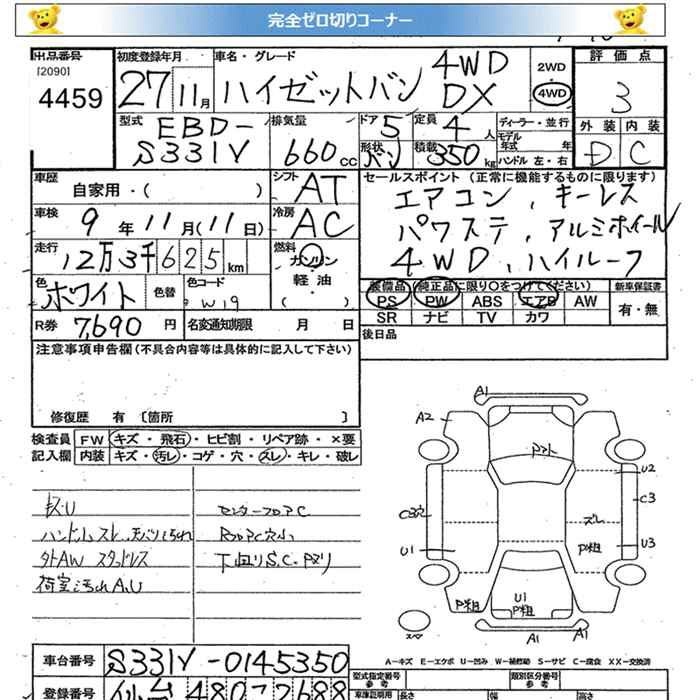 完全ゼロ切りコーナー
出品番号 初度登録年月 車名・グレード 2WD 評価点
[2090] 4459 27 11月 ハイゼットバン 4WD DX 4WD 3
型式 排気量 ドア 定員 ディーラー・並行 外装 内装
EBD- S331V 660cc 5 4人 モデル年式 年 D C
形状 バン 積載 350kg ハンドル 左・右
車歴 シフト セールスポイント(正常に機能するものに限ります)
自家用・( ) AT エアコン、キーレス
車検 9年11月(11日) 冷房 AC パワステ、アルミホイール
走行 12万3千625km 燃料 ガソリン・軽油・( ) 4WD、ハイルーフ
色 ホワイト 色替 色コード W19
装備品(純正品に限り○をつけてください) 新車保証書
PS PW ABS エアB AW 有・無
SR ナビ TV カワ
R券 7,690円 名変通知期限 月 日 後日品
注意事項申告欄(不具合内容等は具体的に記入して下さい)
修復歴 有 [箇所 ]
検査員 FW キズ・飛石・ヒビ割・リペア跡・×要
記入欄 内装 キズ・汚レ・コゲ・穴・スレ・キレ・破レ
ハンドルスレ 天バリ汚れ
外AW スタッドレス
荷室汚れA,U
センターフロアC
RフロアC穴小
下廻りS.C.Pヌリ
A1
A2
U2
C3穴 C3
スレ
U1 P粗 U3
U1
P粗 P粗
A1 A1
スペア
A-キズ E-エクボ U-凹み W-補修跡 S-サビ C-腐食 XX-交換済
車台番号 S331V-0145350
登録番号 仙台 480 7688
型式指定番号 参考 類別区分番号 参考
車庫証明用 長さ 幅 高さ